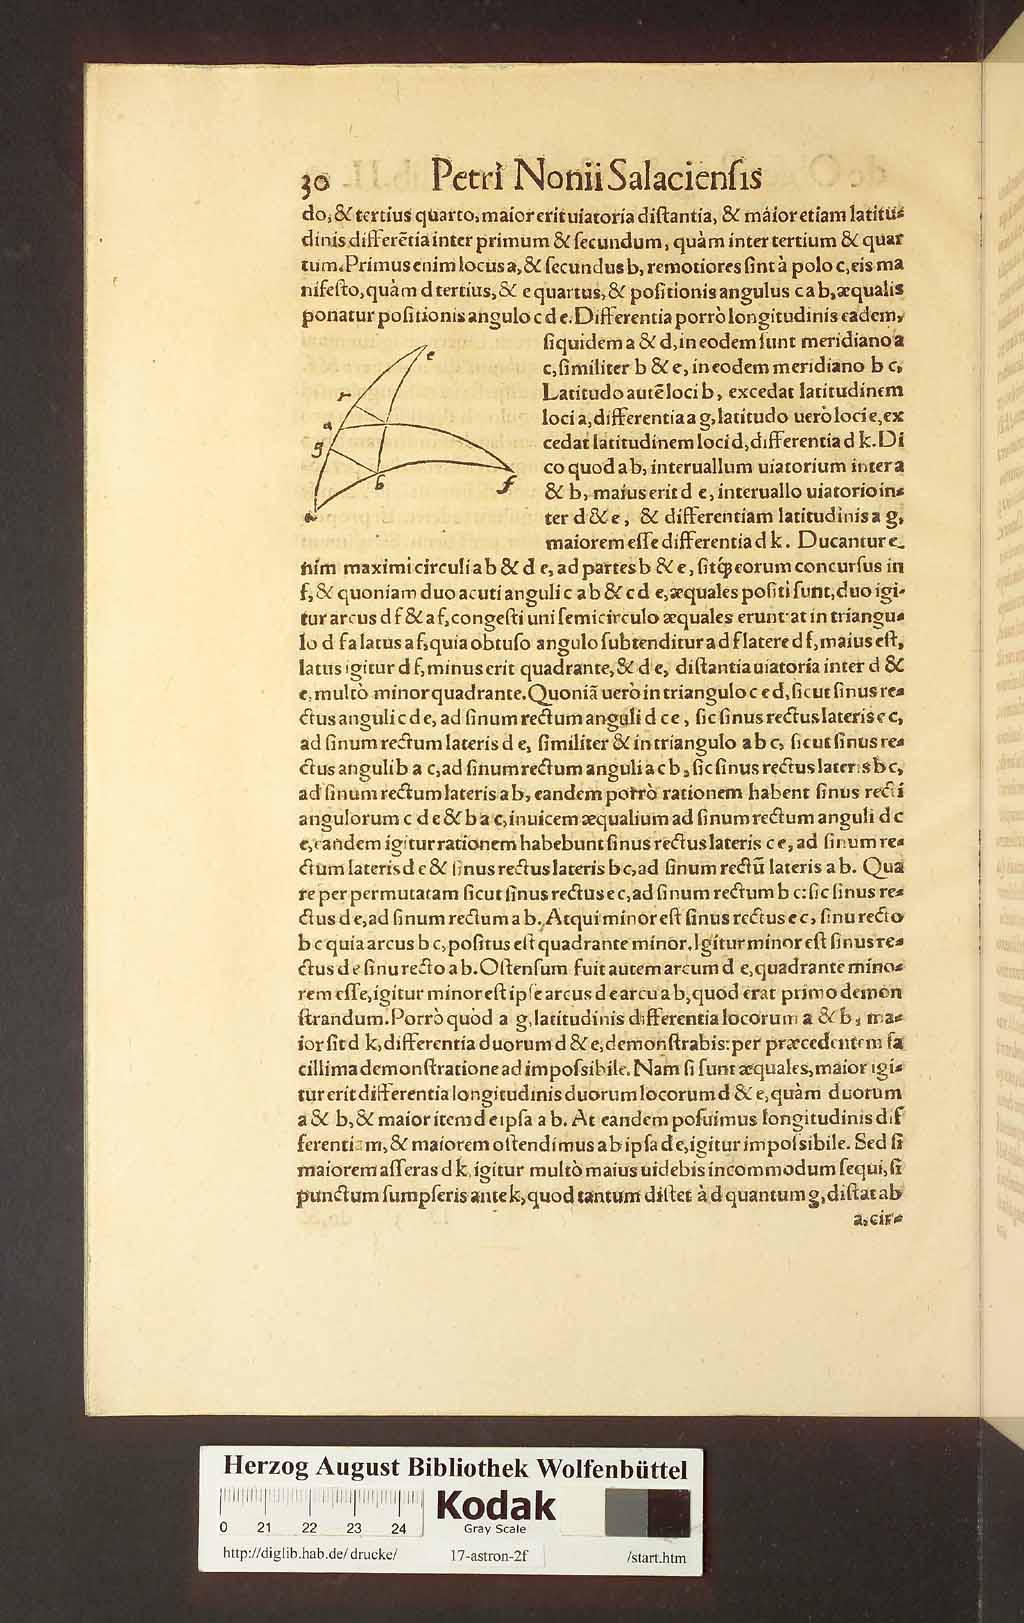 30 Petri Nonii Salaciensis
do, & tertius quarto, maior erit uiatoria distantia, & máior etiam latitu-
dinis differẽtia inter primum & secundum, quàm inter tertium & quar
tum. Primus enim locus a, & secundus b, remotiores sint à polo c, eis ma
nifesto, quàm d tertius, & e quartus, & positionis angulus c a b, æqualis
ponatur positionis angulo c d e. Differentia porrò longitudinis eadem,
siquidem a & d, in eodem sunt meridiano a
c, similiter b & e, in eodem meridiano b c,
Latitudo autẽ loci b, excedat latitudinem
loci a, differentia a g, latitudo uerò loci e, ex
cedat latitudinem loci d, differentia d k. Di
co quod a b, interuallum uiatorium inter a
& b, maius erit d e, interuallo uiatorio in-
ter d & e, & differentiam latitudinis a g,
maiorem esse differentia d k. Ducantur e-
nim maximi circuli a b & d e, ad partes b & e, sitq́; eorum concursus in
f, & quoniam duo acuti anguli c a b & c d e, æquales positi sunt, duo igi-
tur arcus d f & a f, congesti uni semicirculo æquales erunt at in triangu-
lo d f a latus a f, quia obtuso angulo subtenditur a d f latere d f, maius est,
latus igitur d f, minus erit quadrante, & d e, distantia uiatoria inter d &
e, multò minor quadrante. Quoniã uerò in triangulo c e d, sicut sinus re-
ctus anguli c d e, ad sinum rectum anguli d c e, sic sinus rectus lateris e c,
ad sinum rectum lateris d e, similiter & in triangulo a b c, sicut sinus re-
ctus anguli b a c, ad sinum rectum anguli a c b, sic sinus rectus lateris b c,
ad sinum rectum lateris a b, eandem porrò rationem habent sinus recti
angulorum c d e & b a c, inuicem æqualium ad sinum rectum anguli d c
e, eandem igitur rationem habebunt sinus rectus lateris c e, ad sinum re-
ctum lateris d e & sinus rectus lateris b c, ad sinum rectũ lateris a b. Qua
re per permutatam sicut sinus rectus e c, ad sinum rectum b c: sic sinus re-
ctus d e, ad sinum rectum a b. Atqui minor est sinus rectus e c, sinu recto
b c quia arcus b c, positus est quadrante minor. Igitur minor est sinus re-
ctus d e sinu recto a b. Ostensum fuit autem arcum d e, quadrante mino-
rem esse, igitur minor est ipse arcus d e arcu a b, quod erat primo demon
strandum. Porrò quòd a g, latitudinis differentia locorum a & b, ma-
ior sit d k, differentia duorum d & e, demonstrabis: per præcedentem fa
cillima demonstratione ad impossibile. Nam si sunt æquales, maior igi-
tur erit differentia longitudinis duorum locorum d & e, quàm duorum
a & b, & maior item d e ipsa a b. At eandem posuimus longitudinis dif
ferentiam, & maiorem ostendimus ab ipsa d e, igitur impossibile. Sed si
maiorem asseras d k, igitur multò maius uidebis incommodum sequi, si
punctum sumpseris ante k, quod tantum distet à d quantum g, distat ab
a, cir-
e
r
a
g
b
f
a
Herzog August Bibliothek Wolfenbüttel
Kodak
Gray Scale
0 21 22 23 24
http://diglib.hab.de/drucke/ 17-astron-2f /start.htm